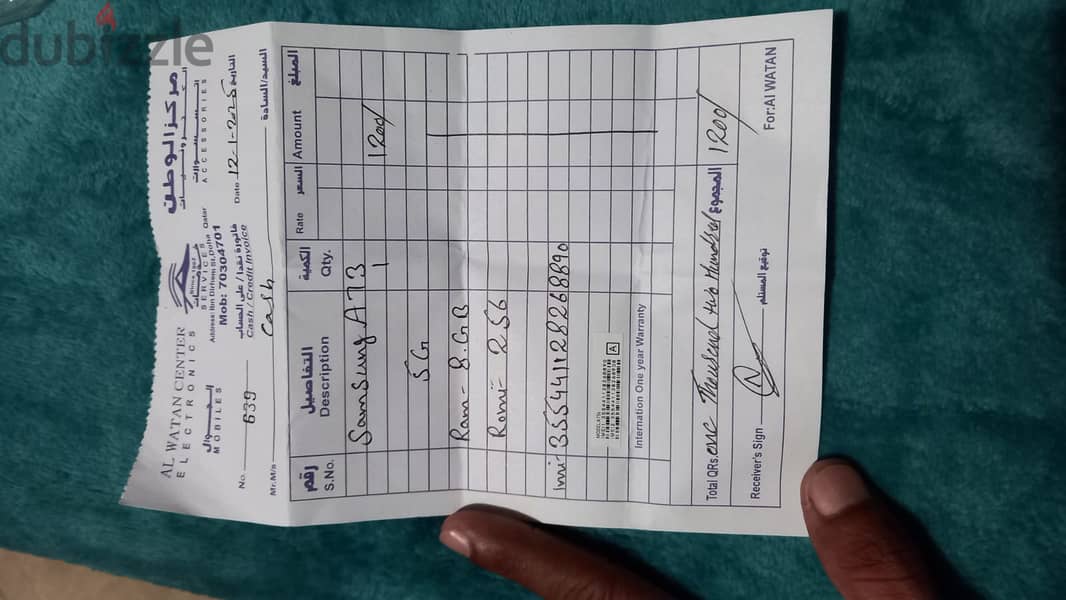 dubizzle
AL WATAN CENTER مركز الوطن
ELECTRONICS
Since 1997
MOBILES SERVICES ACCESSORIES
الجوال خدمات
Address: Ibn Dirhem St, Doha Qatar
Mob: 70304701
فاتورة نقدا / على الحساب
Cash / Credit Invoice
No. 639 Date 12-1-2025 التاريخ
Mr. M/s Cash السيد/السادة
رقم التفاصيل الكمية السعر المبلغ
S.No. Description Qty. Rate Amount
Samsung A73 1 1200/
5G
Ram - 8.GB
Romi - 256
Imi- 355441128268890
A
Internation One year Warranty
Total QRs. one Thousand two Hundred المجموع 1200/
Receiver's Sign توقيع المستلم For:Al WATAN